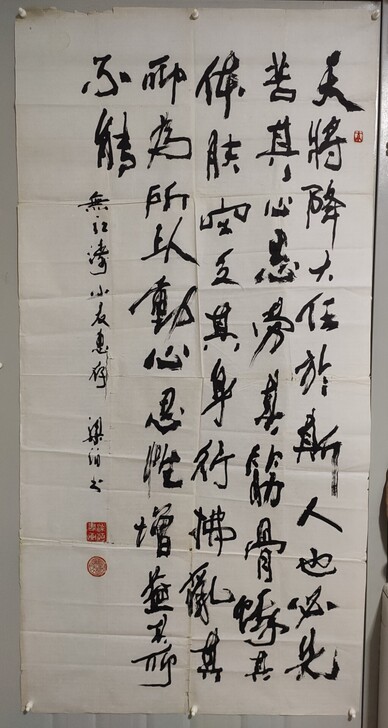 天將降大任於斯人也必先
苦其心志勞其筋骨餓其
体肤空乏其身行拂亂其
所為所以動心忍性增益其所
不能
江濤小友惠存
梁伯书